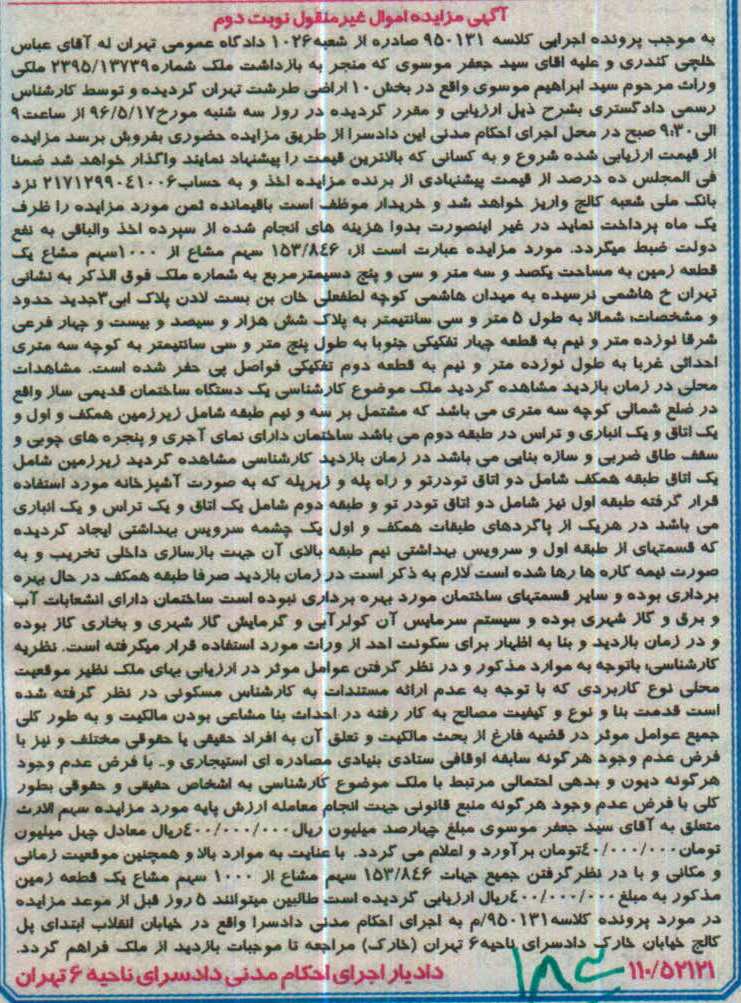 آگهی مزایده اموال غیرمنقول نوبت دوم
به موجب پرونده اجرایی کلاسه ۹۵۰۱۳۱ صادره از شعبه۱۰۲۶ دادگاه عمومی تهران له آقای عباس
خلجی کندری و علیه اقای سید جعفر موسوی که منجر به بازداشت ملک شماره۲۳۹۵/۱۳۷۳۹ ملکی
وراث مرحوم سید ابراهیم موسوی واقع در بخش۱۰ اراضی طرشت تهران گردیده و توسط کارشناس
رسمی دادگستری بشرح ذیل ارزیابی و مقرر گردیده در روز سه شنبه مورخ۹۶/۵/۱۷ از ساعت۹
الی۹:۳۰ صبح در محل اجرای احکام مدنی این دادسرا از طریق مزایده حضوری بفروش برسد مزایده
از قیمت ارزیابی شده شروع و به کسانی که بالاترین قیمت را پیشنهاد نمایند واگذار خواهد شد ضمنا
فی المجلس ده درصد از قیمت پیشنهادی از برنده مزایده اخذ و به حساب۲۱۷۱۲۹۹۰۴۱۰۰۶ نزد
بانک ملی شعبه کالج واریز خواهد شد و خریدار موظف است باقیمانده ثمن مورد مزایده را ظرف
یک ماه پرداخت نماید در غیر اینصورت بدوا هزینه های انجام شده از سپرده اخذ والباقی به نفع
دولت ضبط میگردد. مورد مزایده عبارت است از: ۱۵۳/۸۴۶ سهم مشاع از ۱۰۰۰سهم مشاع یک
قطعه زمین به مساحت یکصد و سه متر و سی و پنج دسیمترمربع به شماره ملک فوق الذکر به نشانی
تهران خ هاشمی نرسیده به میدان هاشمی کوچه لطفعلی خان بن بست لادن پلاک ابی۳جدید حدود
و مشخصات: شمالا به طول ۵ متر و سی سانتیمتر به پلاک شش هزار و سیصد و بیست و چهار فرعی
شرقا نوزده متر و نیم به قطعه چهار تفکیکی جنوبا به طول پنج متر و سی سانتیمتر به کوچه سه متری
احداثی غربا به طول نوزده متر و نیم به قطعه دوم تفکیکی فواصل پی حفر شده است. مشاهدات
محلی در زمان بازدید مشاهده گردید ملک موضوع کارشناسی یک دستگاه ساختمان قدیمی ساز واقع
در ضلع شمالی کوچه سه متری می باشد که مشتمل بر سه و نیم طبقه شامل زیرزمین همکف و اول و
یک اتاق و یک انباری و تراس در طبقه دوم می باشد ساختمان دارای نمای آجری و پنجره های چوبی و
سقف طاق ضربی و سازه بنایی می باشد در زمان بازدید کارشناسی مشاهده گردید زیرزمین شامل
یک اتاق طبقه همکف شامل دو اتاق تودرتو و راه پله و زیرپله که به صورت آشپزخانه مورد استفاده
قرار گرفته طبقه اول نیز شامل دو اتاق تودر تو و طبقه دوم شامل یک اتاق و یک تراس و یک انباری
می باشد در هریک از پاگردهای طبقات همکف و اول یک چشمه سرویس بهداشتی ایجاد گردیده
که قسمتهای از طبقه اول و سرویس بهداشتی نیم طبقه بالای آن جهت بازسازی داخلی تخریب و به
صورت نیمه کاره ها رها شده است لازم به ذکر است در زمان بازدید صرفا طبقه همکف در حال بهره
برداری بوده و سایر قسمتهای ساختمان مورد بهره برداری نبوده است ساختمان دارای انشعابات آب
و برق و گاز شهری بوده و سیستم سرمایس آن کولرآبی و گرمایش گاز شهری و بخاری گاز بوده
و در زمان بازدید و بنا به اظهار برای سکونت احد از وراث مورد استفاده قرار میگرفته است. نظریه
کارشناسی: باتوجه به موارد مذکور و در نظر گرفتن عوامل موثر در ارزیابی بهای ملک نظیر موقعیت
محلی نوع کاربردی که با توجه به عدم ارائه مستندات به کارشناس مسکونی در نظر گرفته شده
است قدمت بنا و نوع و کیفیت مصالح به کار رفته در احداث بنا مشاعی بودن مالکیت و به طور کلی
جمیع عوامل موثر در قضیه فارغ از بحث مالکیت و تعلق آن به افراد حقیقی یا حقوقی مختلف و نیز با
فرض عدم وجود هرگونه سابقه اوقافی ستادی بنیادی مصادره ای استیجاری و.. با فرض عدم وجود
هرگونه دیون و بدهی احتمالی مرتبط با ملک موضوع کارشناسی به اشخاص حقیقی و حقوقی بطور
کلی با فرض عدم وجود هرگونه منبع قانونی جهت انجام معامله ارزش پایه مورد مزایده سهم الارث
متعلق به آقای سید جعفر موسوی مبلغ چهارصد میلیون ریال۴۰۰/۰۰۰/۰۰۰ریال معادل چهل میلیون
تومان۴۰/۰۰۰/۰۰۰تومان برآورد و اعلام می گردد. با عنایت به موارد بالا و همچنین موقعیت زمانی
و مکانی و با در نظرگرفتن جمیع جهات ۱۵۳/۸۴۶ سهم مشاع از ۱۰۰۰ سهم مشاع یک قطعه زمین
مذکور به مبلغ ۴۰۰/۰۰۰/۰۰۰ریال ارزیابی گردیده است طالبین میتوانند ۵ روز قبل از موعد مزایده
در مورد پرونده کلاسه۹۵۰۱۳۱/م به اجرای احکام مدنی دادسرا واقع در خیابان انقلاب ابتدای پل
کالج خیابان خارک دادسرای ناحیه۶ تهران (خارک) مراجعه تا موجبات بازدید از ملک فراهم گردد.
۱۱۰/۵۲۱۲۱ دادیار اجرای احکام مدنی دادسرای ناحیه ۶ تهران